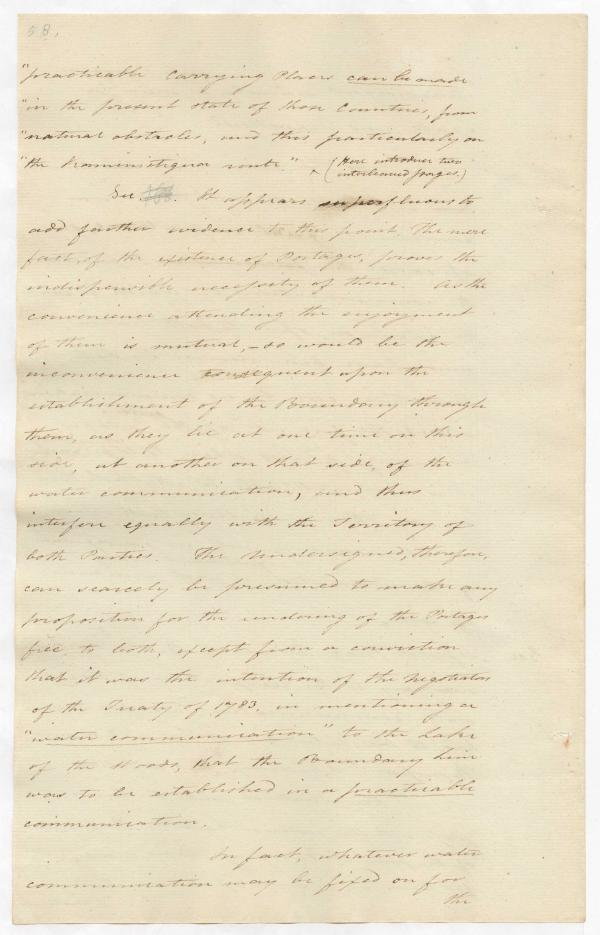 58.
"practicable Carrying Places can be made
"in the present state of those Countries, from
"natural obstacles, and this particularly on
"the Kaministiquia route."
(Here introduce two
interleaved pages.)
Sec. It appears superfluous to
add further evidence to this point. The mere
fact, of the existence of Portages, proves the
indispensible necessity of them. As the
convenience attending the enjoyment
of them is mutual, – so would be the
inconvenience consequent upon the
establishment of the Boundary through
them, as they lie at one time on this
side, at another on that side, of the
water communication, and thus
interfere equally with the Territory of
both Parties. The Undersigned, therefore,
can scarcely be presumed to make any
proposition for the rendering of the Portages
free to both, except from a conviction
that it was the intention of the Negotiators
of the Treaty of 1783, in mentioning a
"water communication" to the Lake
of the Woods, that the Boundary Line
was to be established in a practicable
communication.
In fact, whatever water
communication may be fixed on for
the